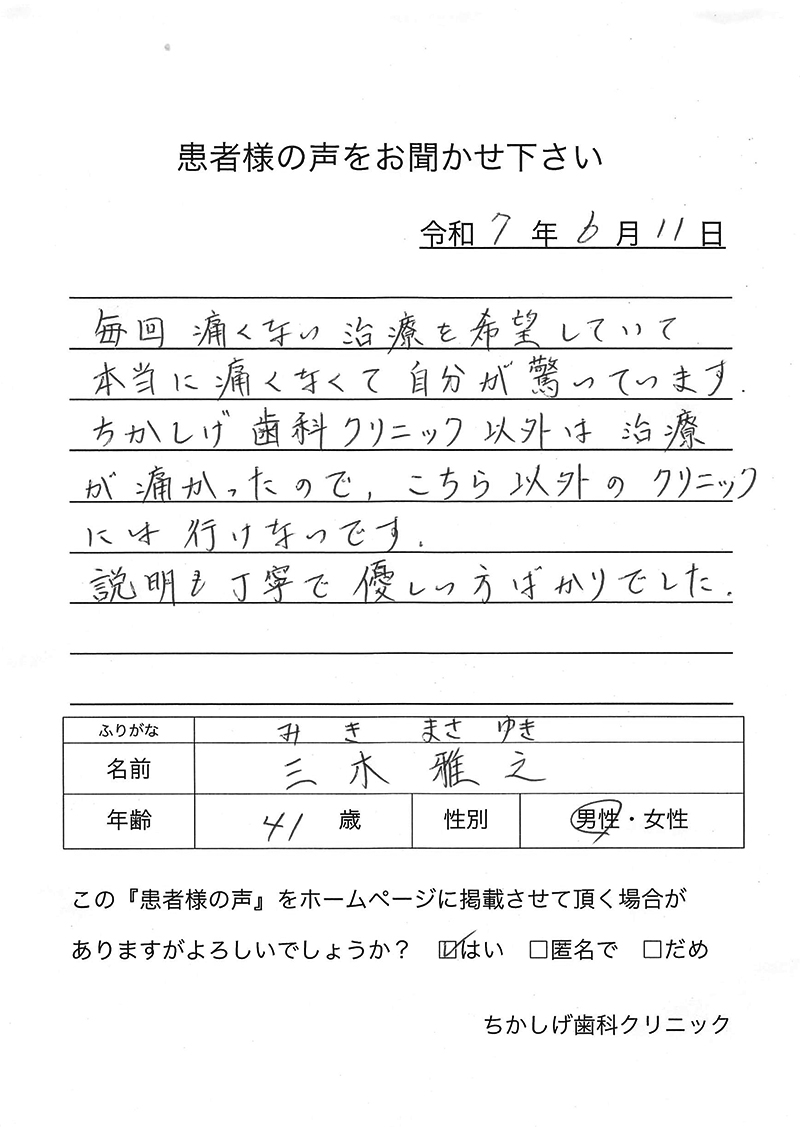 患者様の声をお聞かせ下さい
令和 7 年 6 月 11 日
毎回 痛くない 治療を希望していて
本当に痛くなくて 自分が驚いています.
ちかしげ 歯科クリニック 以外は 治療
が痛かったので, こちら以外の クリニック
には 行けないです.
説明も丁寧で 優しい方ばかりでした.
ふりがな みき まさゆき
名前 三木 雅之
年齢 41 歳 性別 男性・女性
この『患者様の声』をホームページに掲載させて頂く場合が
ありますがよろしいでしょうか？ ☑はい □匿名で □だめ
ちかしげ歯科クリニック